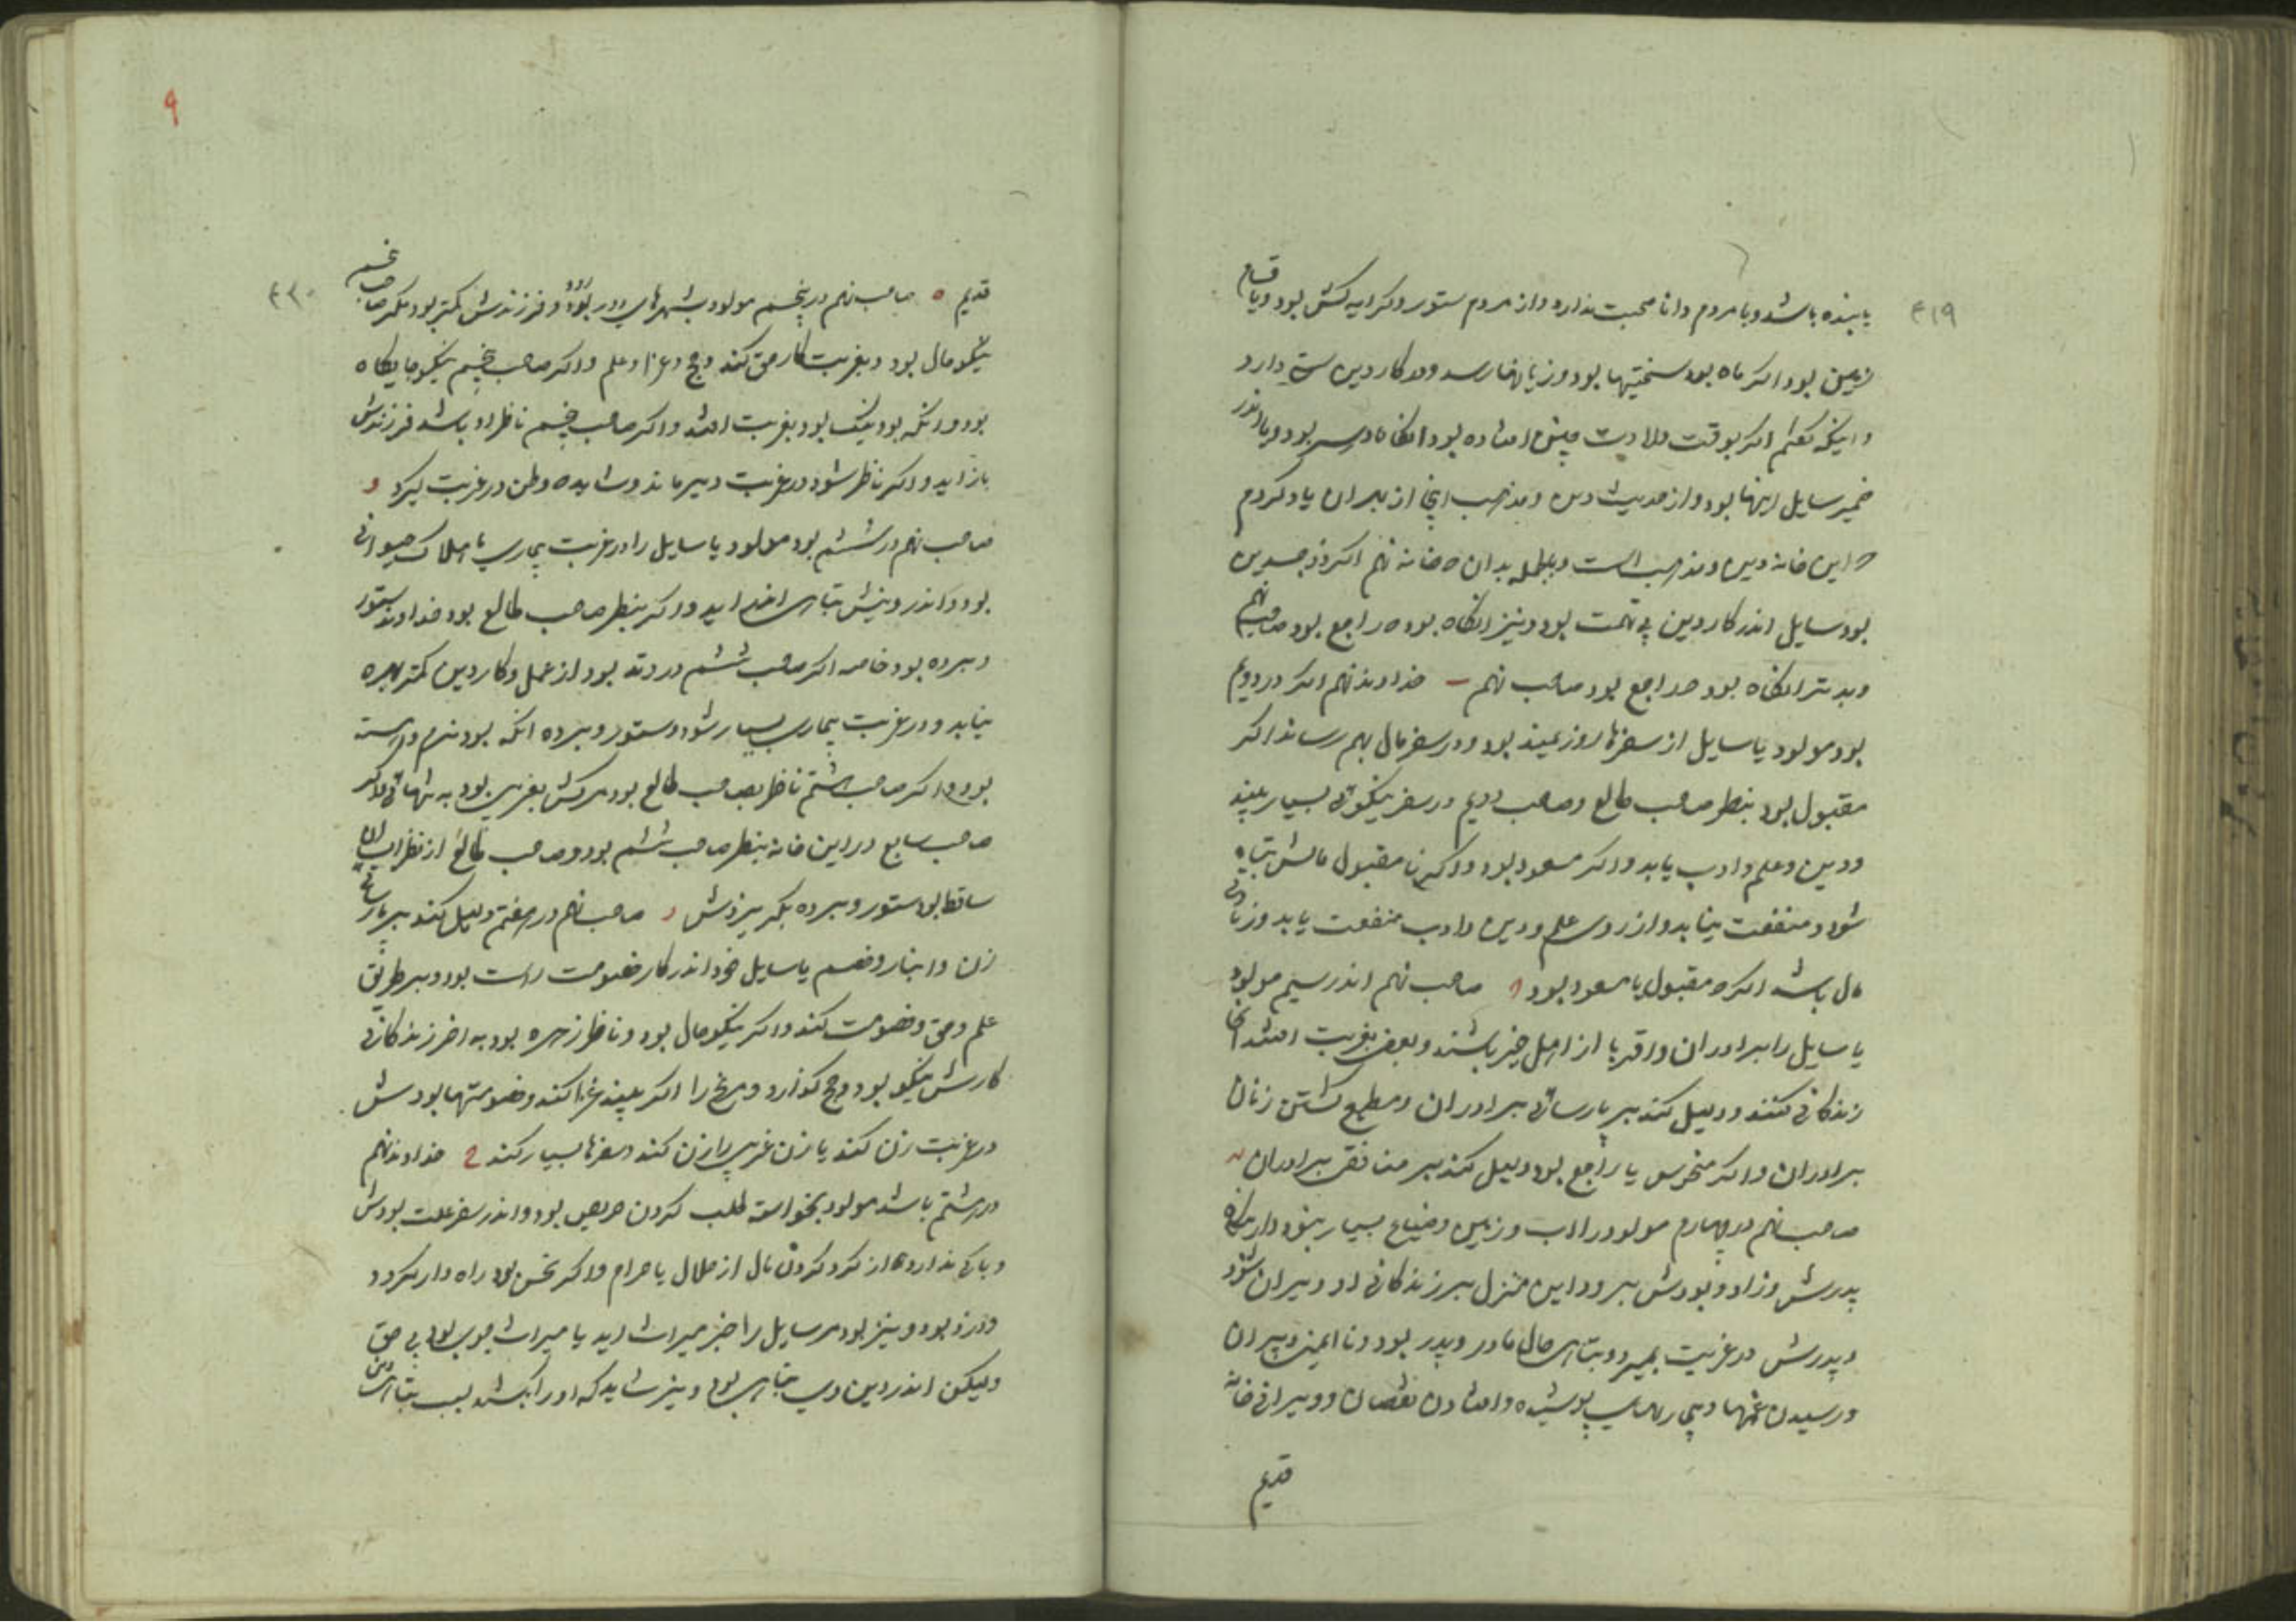 ۴۱۹
باشد و با مردم دانا صحبت ندارد و از مردم ستور و کرایه کش بود و یا قسام
زمین بود اگر ماه بود سختیها بود و زیانها رسد و در کار دین سست دارد
و اینکه گفتم اگر بوقت ولادت چنین افتاده بود انگاه بود و یا اندر
ضمیر سایل اینها بود و از حدیث دین و مذهب اینجا از بهر ان یاد کردم
که این خانه دین و مذهب است و بجمله بدان که خانه نهم اگر ذو جسدین
بود سایل اندر کار دین بی تهمت بود و نیز انگاه بود که راجع بود صاحب نهم
و بدتر انگاه بود که راجع بود صاحب نهم ب خداوند نهم اگر در دویم
بود مولود یا سایل از سفرها روزیمند بود و در سفر مال بهم رساند اگر
مقبول بود بنظر صاحب طالع و صاحب دویم در سفر نیکوئی بسیار بیند
و دین و علم و ادب یابد و اگر مسعود بود و اگر نا مقبول مالش تباه
شود و منفعت نیابد و از روی علم و دین و ادب منفعت یابد و زیانی
مال باشد اگر که مقبول یا مسعود بود ج صاحب نهم اندر سیم مولود
یا سایل را برادران و اقربا از اهل خیر باشند و بعضی بغربت افتند انجا
زندکانی کنند و دلیل کند بر پارسائی برادران و مطیع کشتن زنان
برادران و اگر منحوس یا راجع بود دلیل کند بر منافقی برادران د
صاحب نهم در چهارم مولود را اب و زمین و ضیاع بسیار بود
پدرش و زاد و بودش ببرد و این منزل بر زندکانی او ویران شود
و پدرش در غربت بمیرد و تباهی حال مادر و پدر بود و نا ایمنی پیران
و رسیدن غمها و بیماریهای پوشیده و افتادن نقصان و ویرانی خانه
قدیم
۹
۴۲۰
قدیم ه صاحب نهم در پنجم مولود بشهرهای دور بود و فرزندش کمتر بود مگر صاحب پنجم
نیکو حال بود و بغربت کار حق کند و حج و غزا و علم و اگر صاحب پنجم نیکو جایگاه
بود و انکه بود نیک بود بغربت افتد و اگر صاحب پنجم ناظر او باشد فرزندش
باز اید و اگر ناظر شود در غربت دیر ماند و شاید که وطن در غربت گیرد و
صاحب نهم در ششم بود مولود یا سایل را در غربت بیماری یا املاک حیوانی
بود و اندر دینش تباهی افتد اید و اگر بنظر صاحب طالع بود خداوند ستور
و برده بود خاصه اگر صاحب ششم در وتد بود از عمل و کار دین کمتر بهره
نیابد و در غربت بیماری بسیار شود و ستور و برده انکه بود نرم و اهسته
بود و اگر صاحب هشتم ناظر بصاحب طالع بود مرکش بغریبی بود به تنهائی و اگر
صاحب سابع در این خانه بنظر صاحب ششم بود و صاحب طالع از نظر ایشان
ساقط بود ستور و برده بگریزدش ز صاحب نهم در هفتم دلیل کند بر پارسائی
زن و انباز و خصم یا سایل خود اندر کار خصومت راست بود و بر طریق
علم و حق خصومت کند و اگر نیکو حال بود و ناظر زهره بود به اخر زندکانی
کارش نیکو بود و حج کذارد و مریخ را اگر بیند غزا کند و خصومتها بودش
در غربت زن کند یا زن غریب را زن کند و سفرها بسیار کند ح خداوند نهم
در هشتم باشد مولود بخواسته طلب کردن حریص بود و اندر سفر علت بودش
و باکی ندارد از کرد کردن مال از حلال یا حرام و اگر نحس بود راه دار گردد
و دزد بود و نیز بود مر سایل را خبر میراث اید یا میراث جوی بود بی حق
ولیکن اندر دین وی تباهی بود و نیز شاید که او را بکشند بسبب تباهی دین